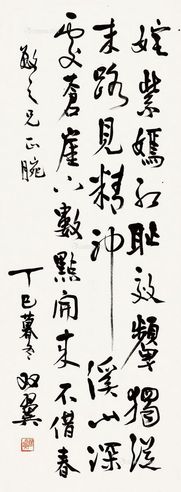 姹紫嫣紅耻效顰獨從
末路見精神溪山深
處蒼崖下數點開來不借春
敬之兄正腕
丁巳暮冬双翼